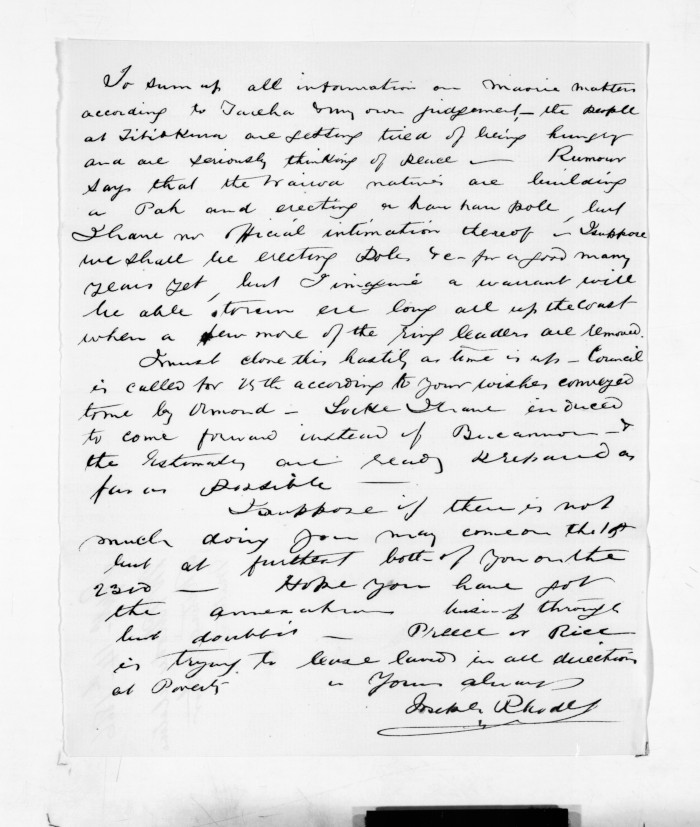 To sum up all information on Maorie matters
according to Tareha & my own judgement – the people
at Titiokura are getting tired of being hungry
and are seriously thinking of peace – Rumour
says that the Wairoa natives are building
a Pah and erecting a hau hau pole, but
I have no official intimation thereof – I suppose
we shall be erecting Poles &c – for a good many
years yet, but I imagine a warrant will
be able to run ere long all up the Coast
when a few more of the ring leaders are removed.
I must close this hastily as time is up – Council
is called for 25th according to your wishes conveyed
to me by Ormond – Locke I have induced
to come forward instead of Bucannon – &
the Estimates are ready prepared as
far as possible —
I suppose if there is not
much doing you may come on the
but at furthest both of you on the
23rd — Hope you have got
the annexation through
but doubt it — Preece or Rice
is trying to lease lands in all directions
at Poverty – Yours always
Joseph Rhodes